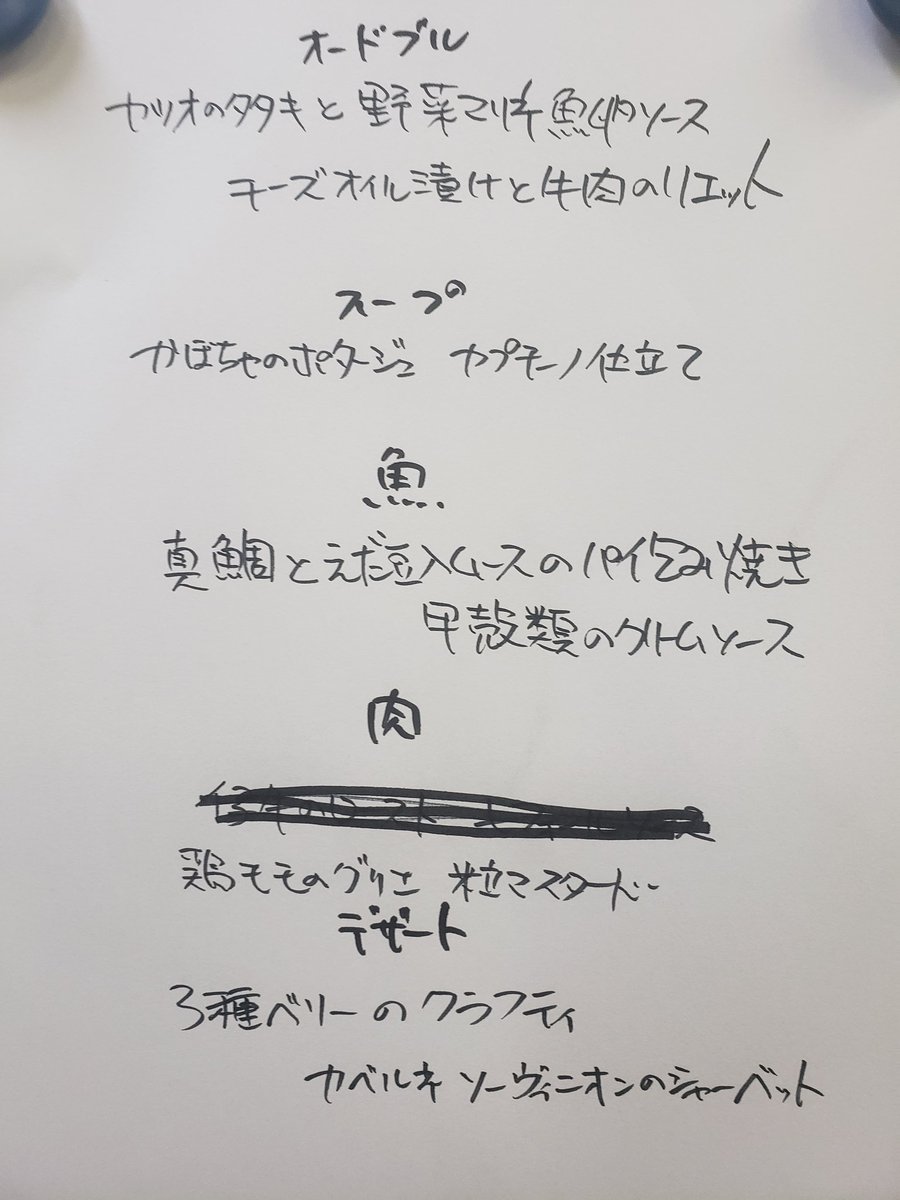 オードブル
カツオのタタキと野菜マリネ魚卵ソース
チーズオイル漬けと牛肉のリエット
スープ
かぼちゃのポタージュ カプチーノ仕立て
魚
真鯛とえだ豆入ムースのパイ包み焼き
甲殻類のクリームソース
肉
鶏モモのグリエ 粒マスタード
デザート
3種ベリーのクラフティ
カベルネ ソーヴィニオンのシャーベット